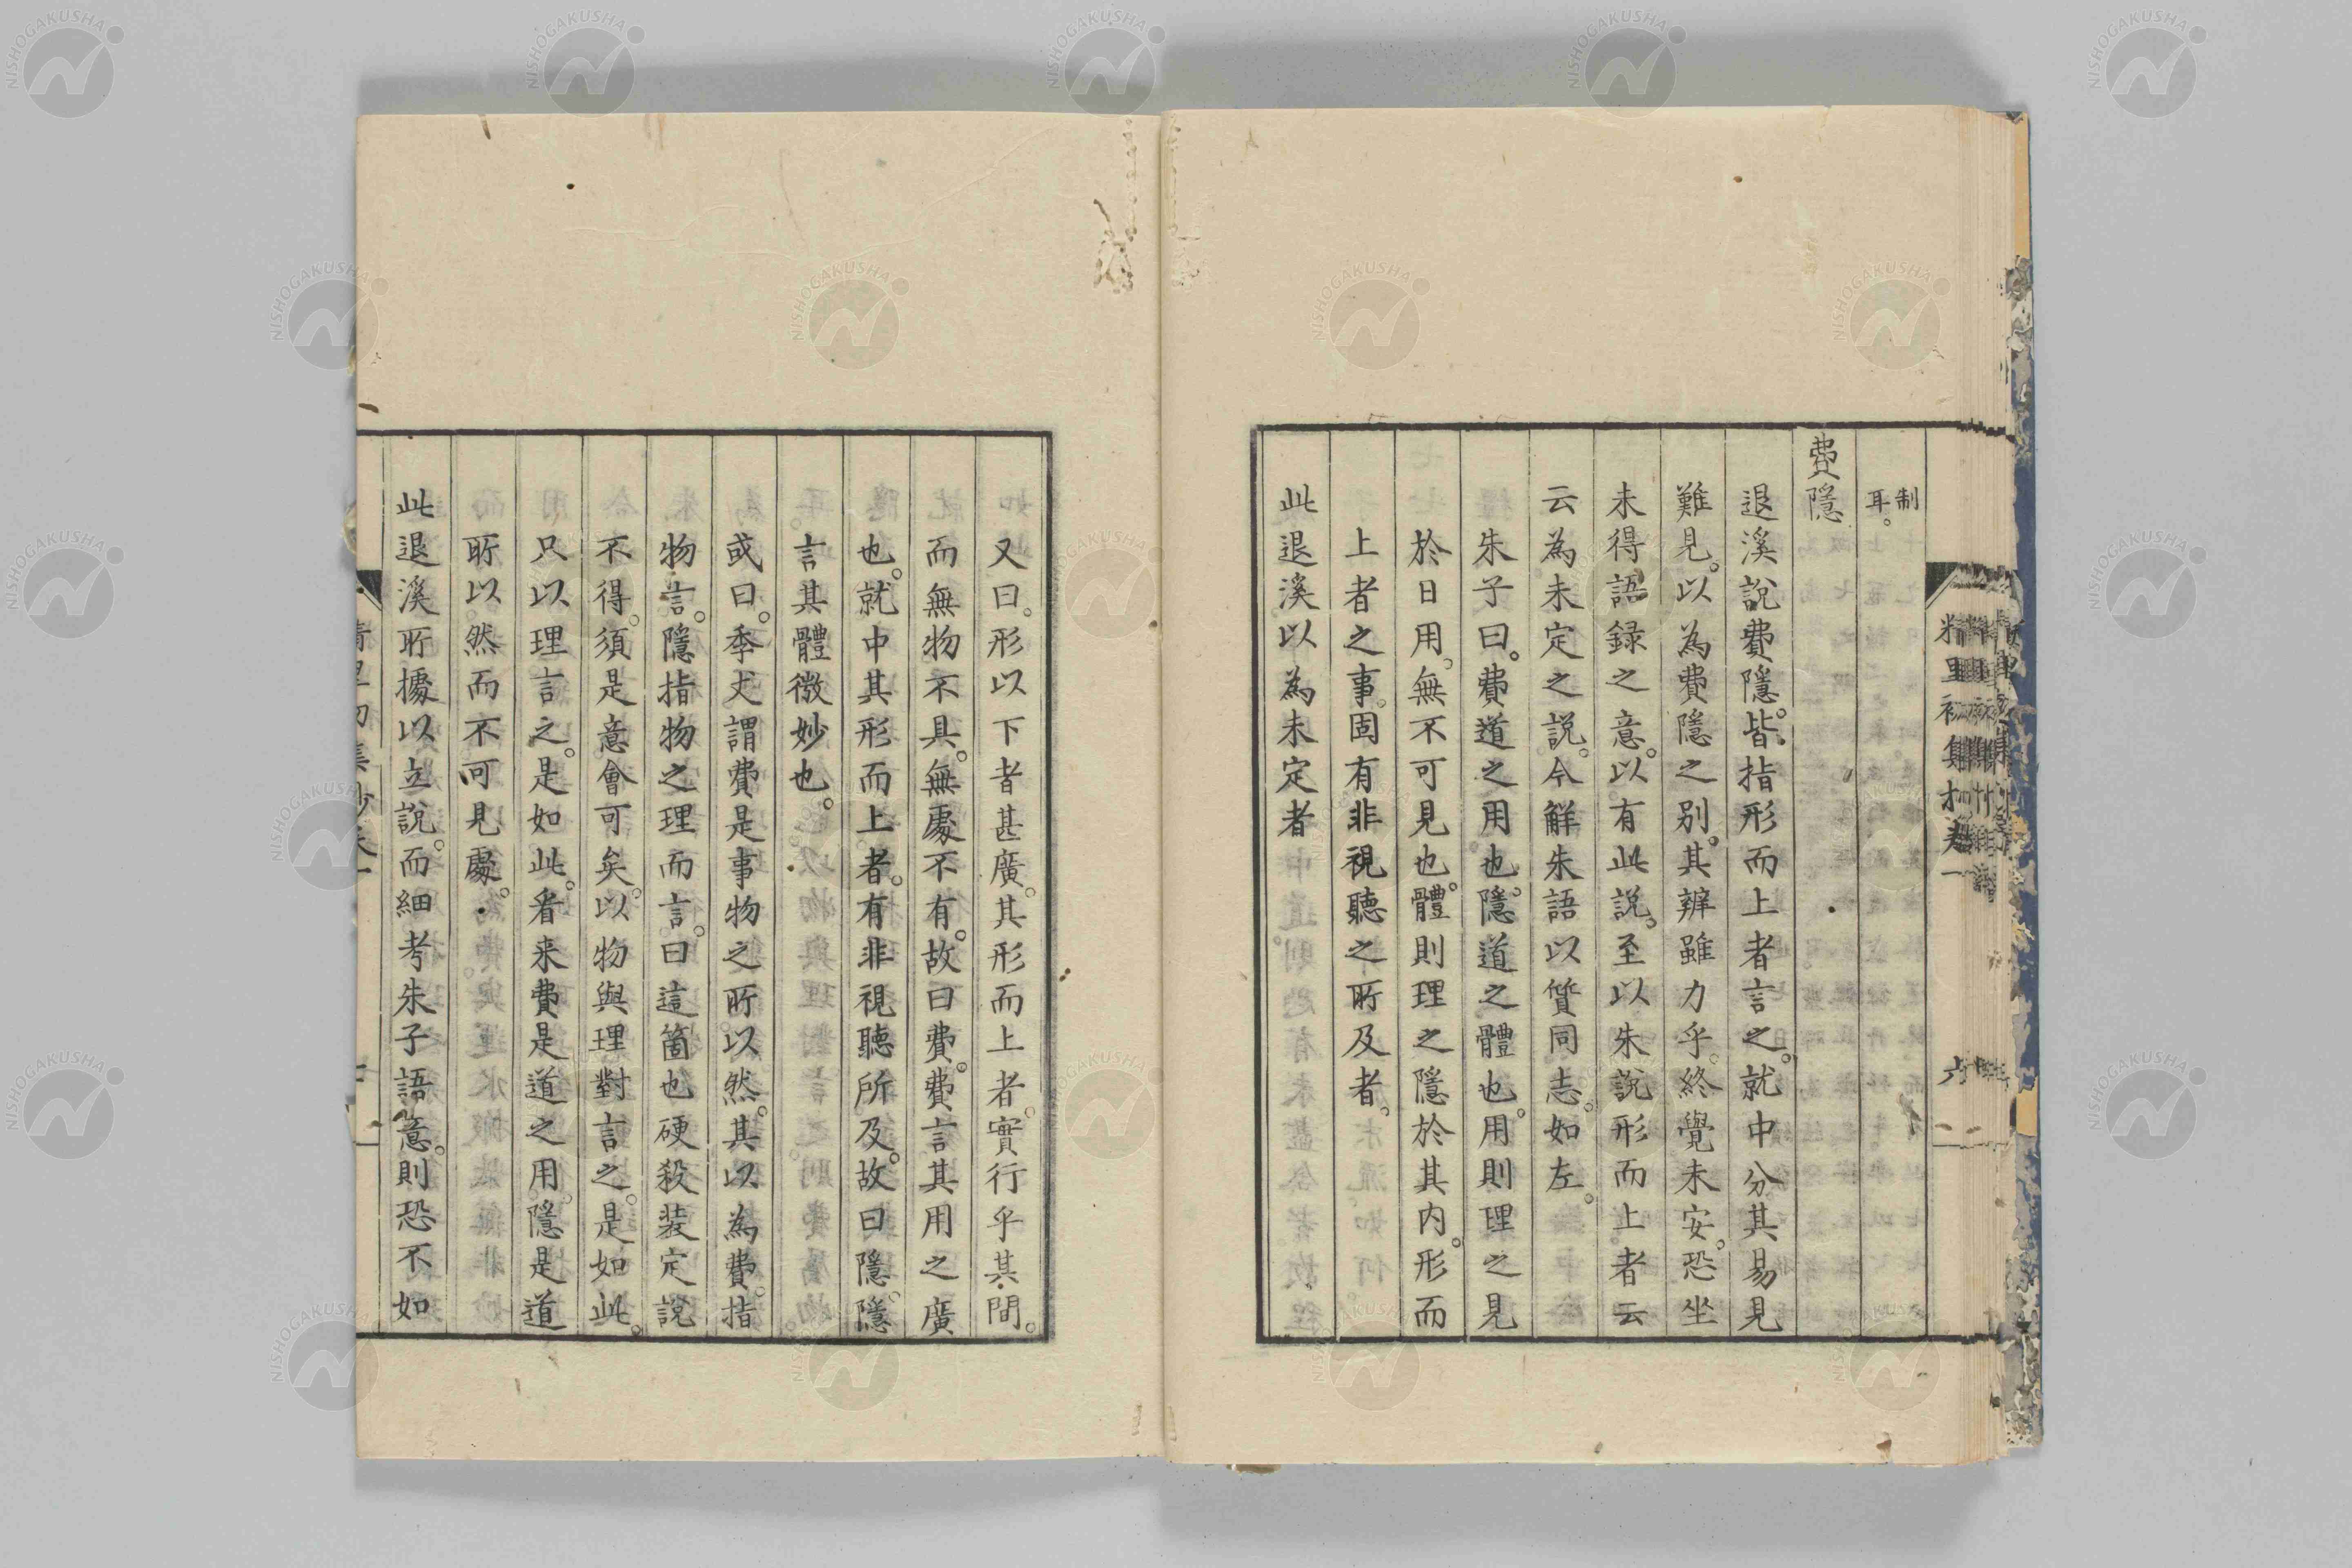 制
耳。
費隱
退溪說費隱。皆指形而上者言之。就中分其易見
難見。以為費隱之别。其辨雖力乎。終覺未安。恐坐
未得語録之意。以有此説。至以朱説形而上者云
云為未定之説。今解朱語以質同志。如左。
朱子曰。費道之用也。隱道之體也。用則理之見
於日用。無不可見也。體則理之隱於其内。形而
上者之事。固有非視聽之所及者。
此退溪以為未定者
又曰。形以下者甚廣。其形而上者。實行乎其間。
而無物不具。無處不有。故曰費。費言其用之廣
也。就中其形而上者。有非視聽所及。故曰隱。隱
言其體微妙也。
或曰。季丈謂費是事物之所以然。其以為費。指
物言。隱指物之理而言。曰這箇也硬殺装定説
不得。須是意會可矣。以物與理對言之。是如此。
只以理言之。是如此。看来費是道之用。隱是道
所以然而不可見處。
此退溪所據以立說。而細考朱子語意。則恐不如
NISHOGAKUSHA